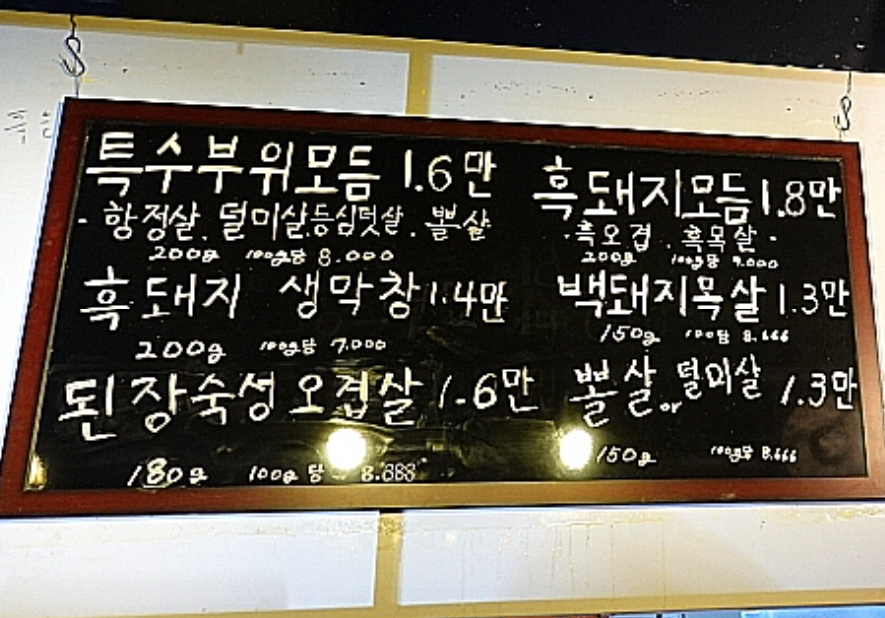 특수부위모듬 1.6만
- 항정살. 덜미살. 등심덧살. 뽈살
200g 100g당 8.000
흑돼지 생막창 1.4만
200g 100g당 7.000
된장숙성 오겹살 1.6만
180g 100g 당 8.888
흑돼지모듬 1.8만
- 흑오겹 . 흑목살 -
200g 100g당 9.000
백돼지목살 1.3만
150g 100당 8.666
뽈살 or 덜미살 1.3만
150g 100g당 8.666